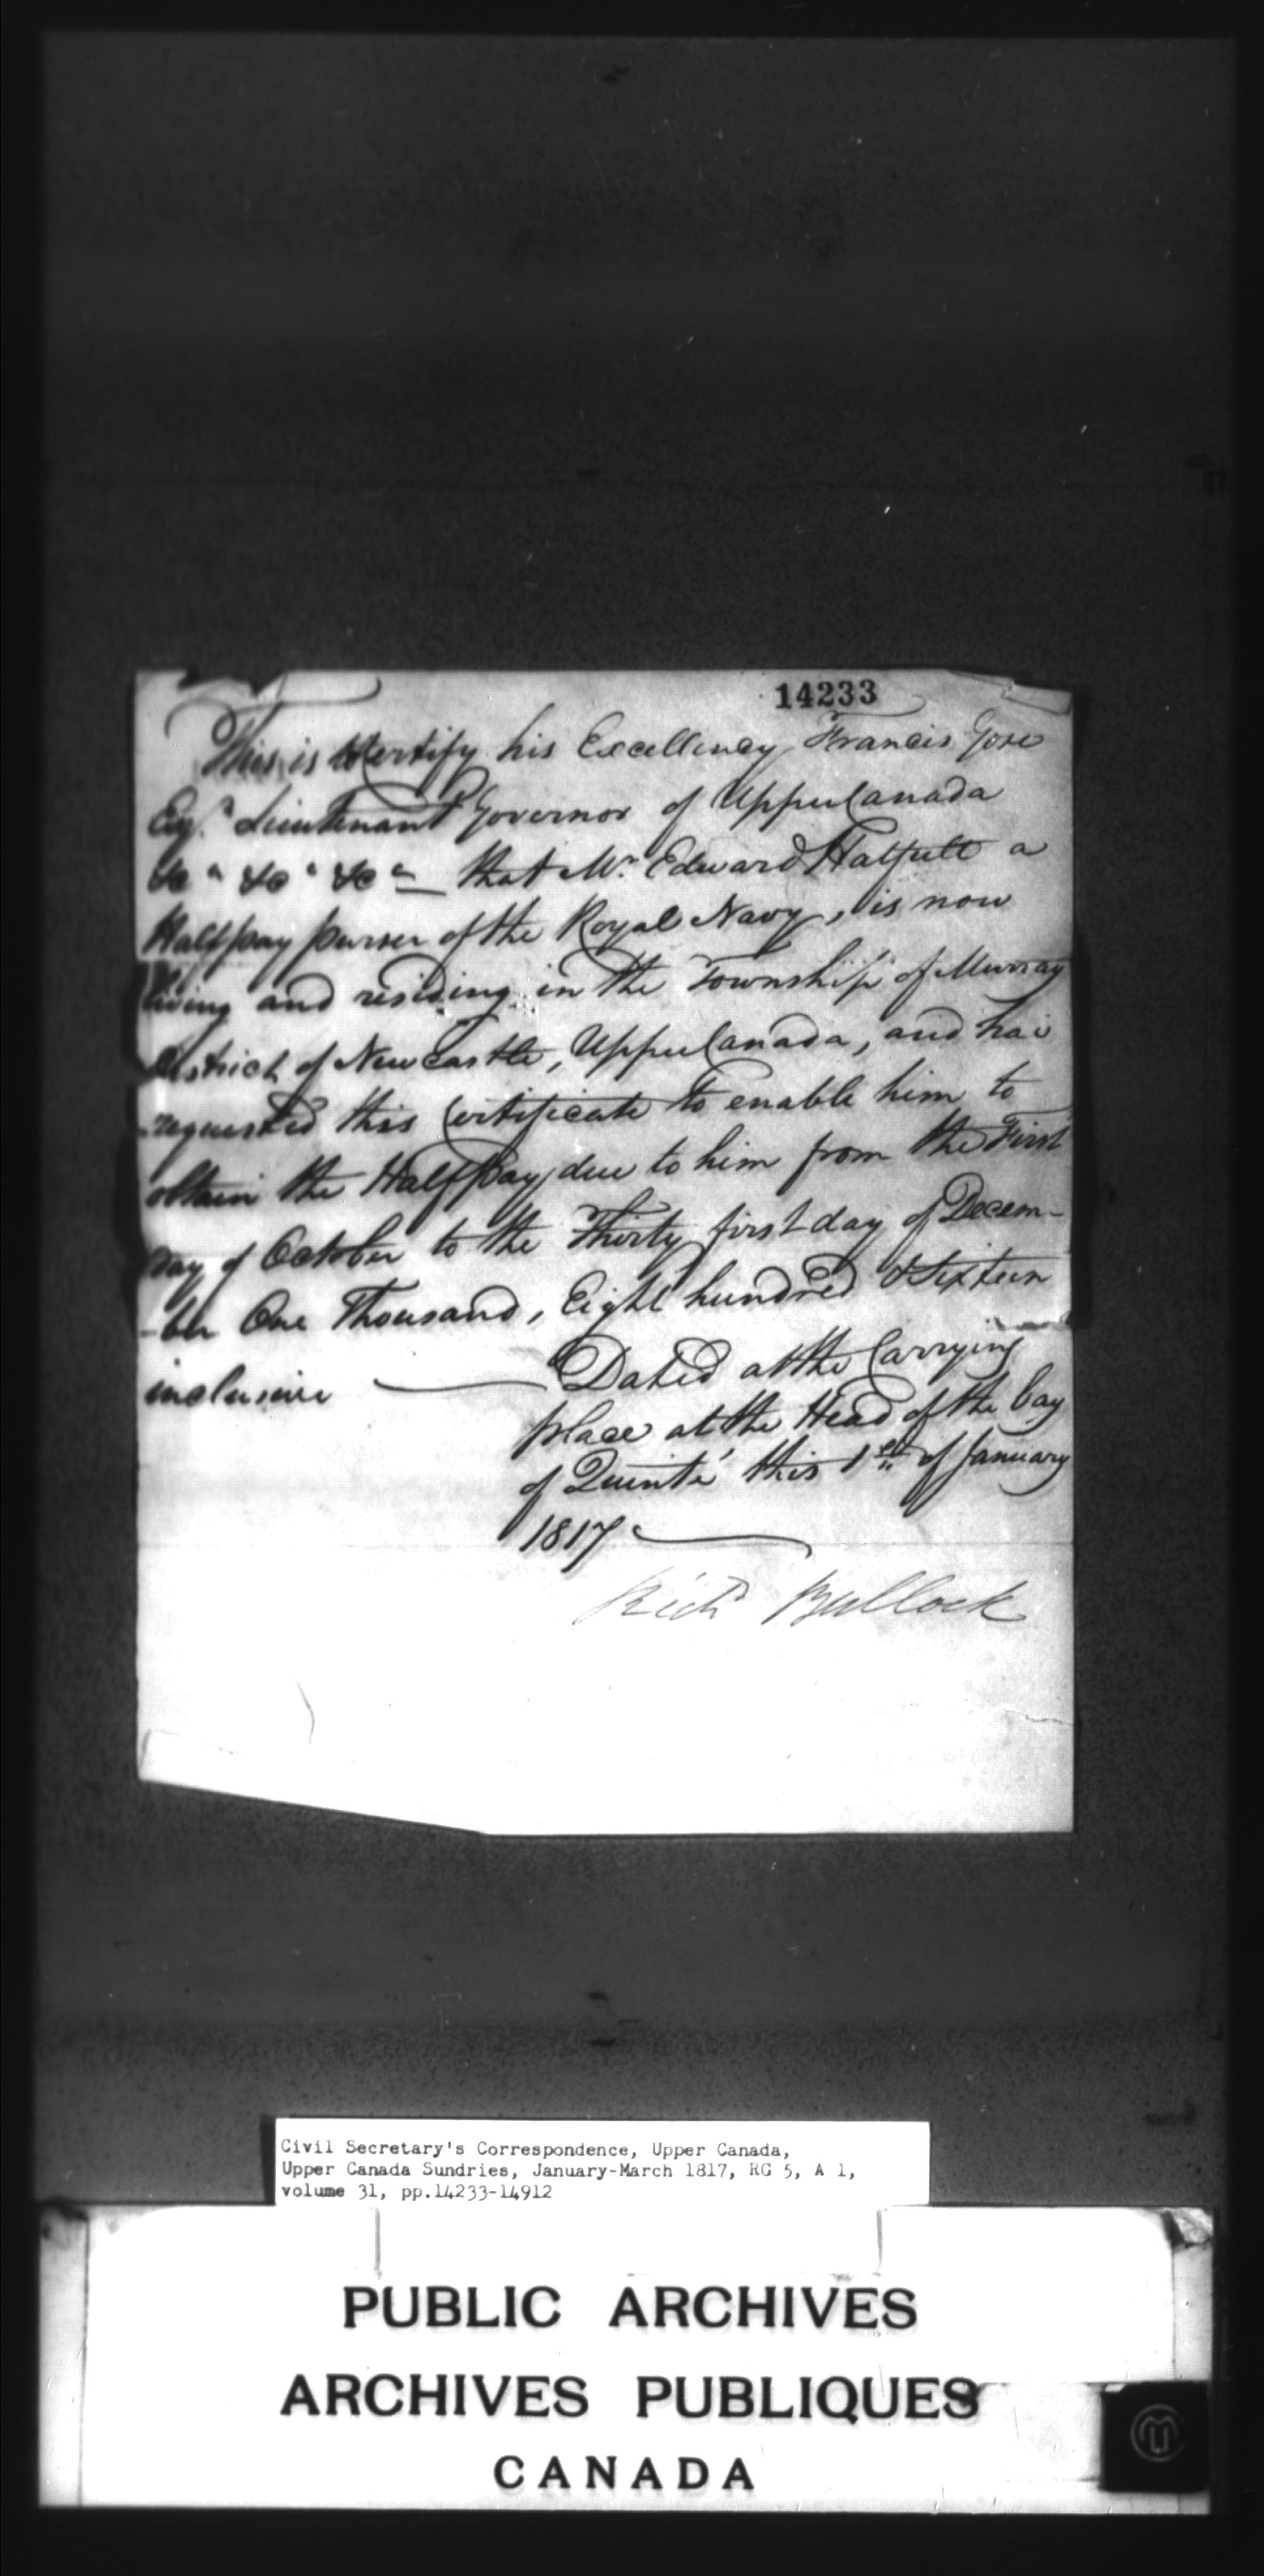 14233
This is to Certify his Excellency Francis Gore
Esq.r Lieutenant Governor of Upper Canada
&c a &c a &c a — that Mr. Edward Hatfull a
Halfpay purser of the Royal Navy, is now
living and residing in the Township of Murray
District of Newcastle, Upper Canada, and has
requested this Certificate to enable him to
obtain the Halfpay due to him from the First
day of October to the Thirty first day of Decem-
-ber One Thousand, Eight hundred & Sixteen
inclusive — Dated at the Carrying
place at the Head of the bay
of Quinté this 1st of January
1817 —
Richd Bullock
Civil Secretary's Correspondence, Upper Canada,
Upper Canada Sundries, January-March 1817, RG 5, A 1,
volume 31, pp.14233-14912
PUBLIC ARCHIVES
ARCHIVES PUBLIQUES
CANADA